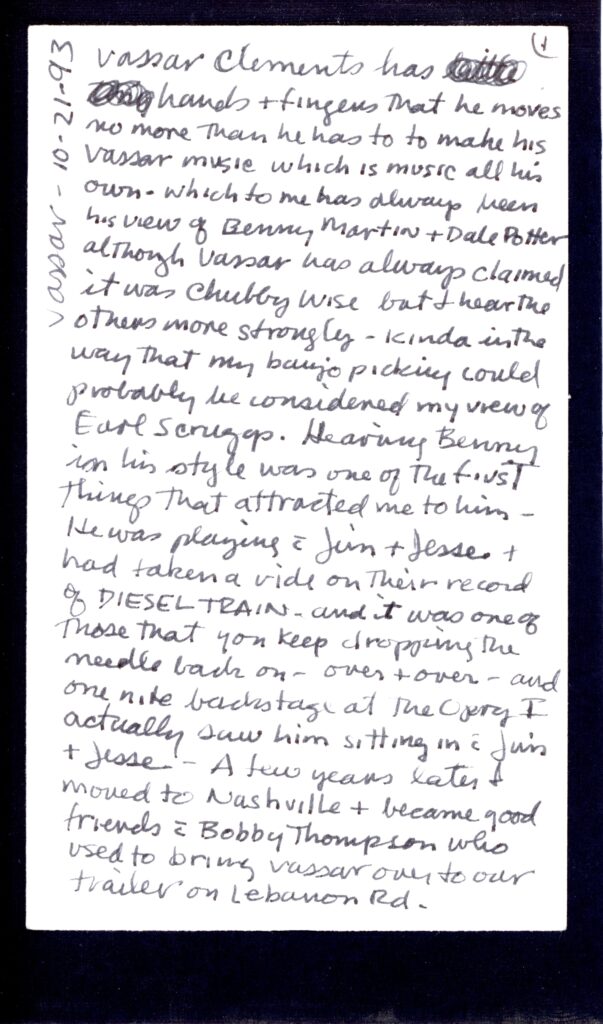 (1
Vassar - 10-21-93
Vassar Clements has
hands + fingers that he moves
no more than he has to to make his
Vassar music which is music all his
own - which to me has always been
his view of Benny Martin + Dale Potter
although Vassar has always claimed
it was Chubby Wise but I hear the
others more strongly - kinda in the
way that my banjo picking could
probably be considered my view of
Earl Scruggs. Hearing Benny
in his style was one of the first
things that attracted me to him -
He was playing c̄ Jim + Jesse +
had taken a ride on their record
of DIESEL TRAIN - and it was one of
those that you keep dropping the
needle back on - over + over - and
one nite backstage at The Opry I
actually saw him sitting in c̄ Jim
+ Jesse - A few years later I
moved to Nashville + became good
friends c̄ Bobby Thompson who
used to bring Vassar over to our
trailer on Lebanon Rd.